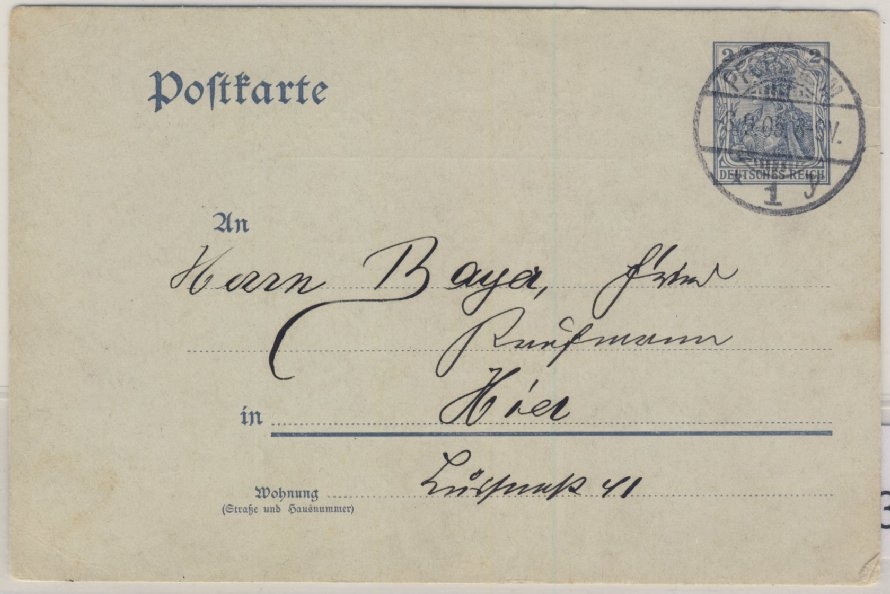 Postkarte
2 2
DEUTSCHES REICH
1 y
An
Herrn Bayer,
Kaufmann
in Hier
Wohnung 41
(Straße und Hausnummer)
3